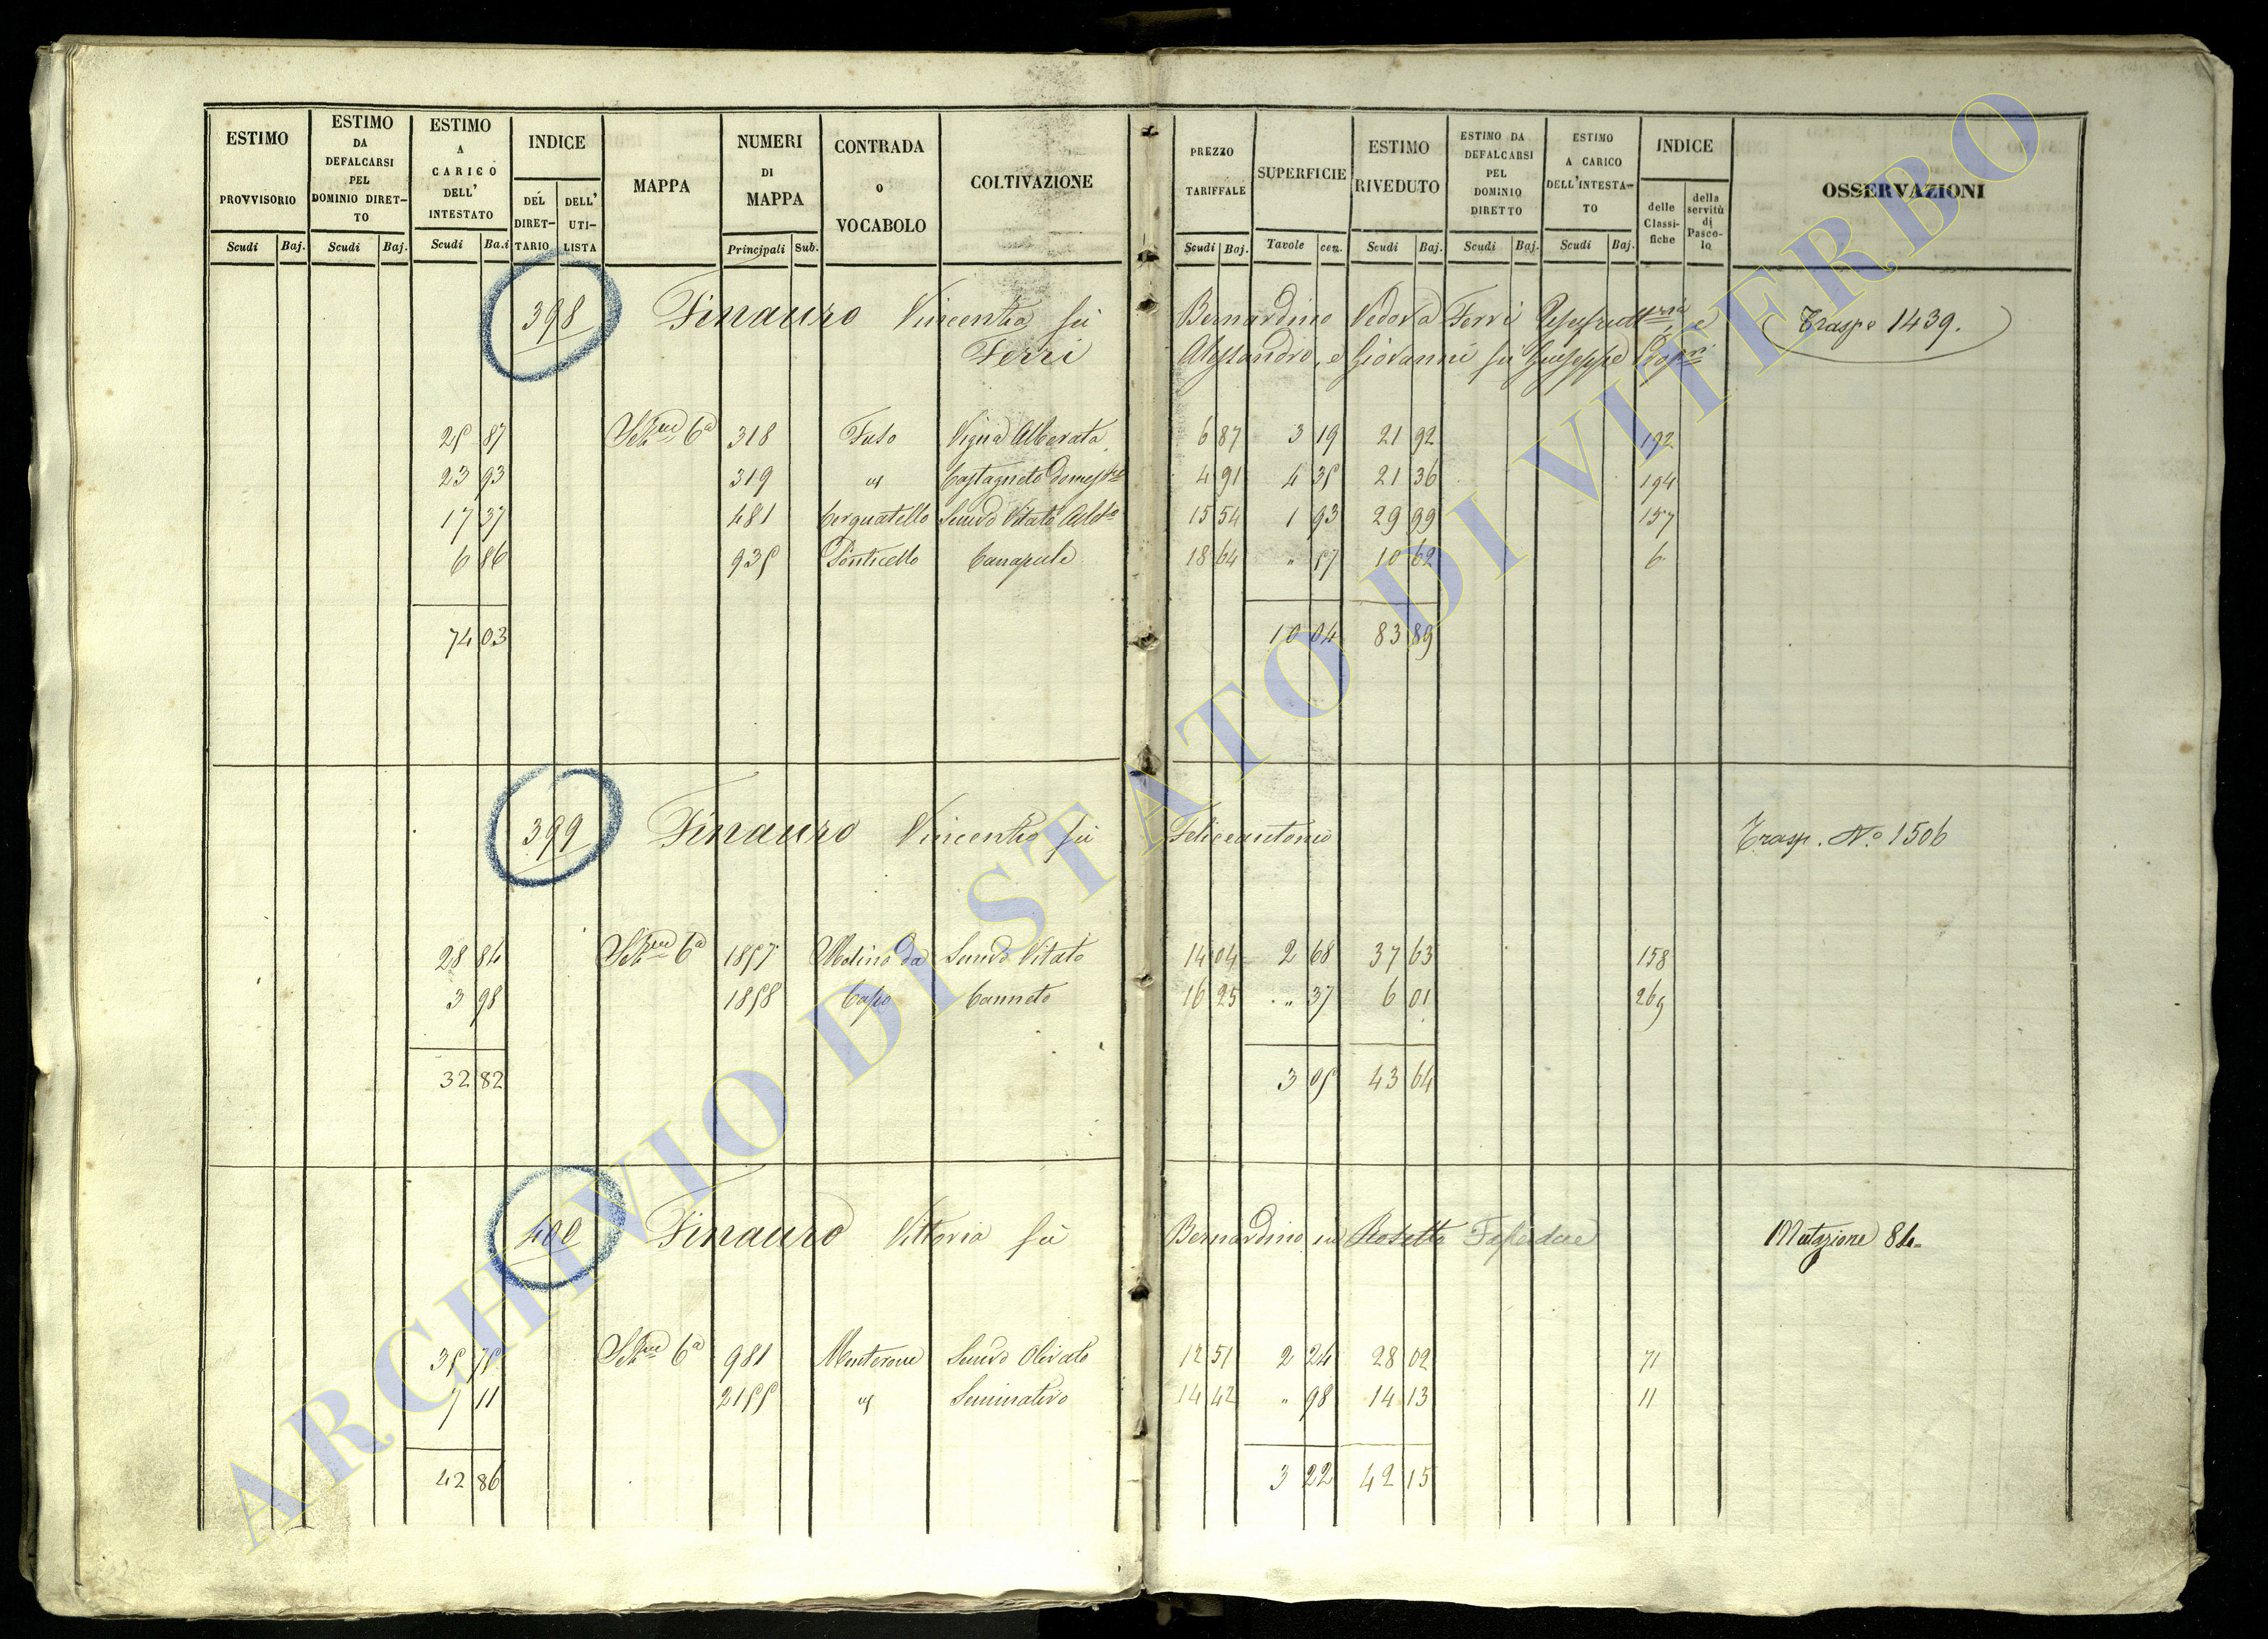 ESTIMO PROVVISORIO
ESTIMO DA DEFALCARSI PEL DOMINIO DIRETTO
ESTIMO A CARICO DELL' INTESTATO
INDICE
DEL DIRETTARIO
DELL' UTILISTA
MAPPA
NUMERI DI MAPPA
CONTRADA O VOCABOLO
COLTIVAZIONE
PREZZO TARIFFALE
SUPERFICIE
ESTIMO RIVEDUTO
ESTIMO DA DEFALCARSI PEL DOMINIO DIRETTO
ESTIMO A CARICO DELL'INTESTATO
INDICE
delle Classifiche
della servitù di Pascolo
OSSERVAZIONI
Scudi Baj. Scudi Baj. Scudi Ba.i Principali Sub. Scudi Baj. Tavole cen. Scudi Baj. Scudi Baj. Scudi Baj.
398 Finauro Vincenza fu Bernardino Vedova Ferri e Traspo 1439.
Ferri Alessandro, e Giovanni fu Giuseppe Propri
25 87 6a 318 Vigna Alberata 6 87 3 19 21 92 192
23 93 319 " Castagneto 4 91 4 35 21 36 194
17 37 481 Cerquatello Semvo Vitato Albto 15 54 1 93 29 99 157
6 86 935 Ponticello Canapule 18 64 " 57 10 62 6
74 03 10 04 83 89
399 Finauro Vincenzo fu Feliceantonio Trasp. No 1506
28 84 6a 1857 Molino da Semvo Vitato 14 04 2 68 37 63 158
3 98 1858 Capo Canneto 16 25 " 37 6 01 269
32 82 3 05 43 64
400 Finauro Vittoria fu Bernardino in Mutazione 84
35 75 6a 981 Monterone Semvo Olivato 12 51 2 24 28 02 71
7 11 2155 " Seminativo 14 42 " 98 14 13 11
42 86 3 22 42 15
ARCHIVIO DI STATO DI VITERBO